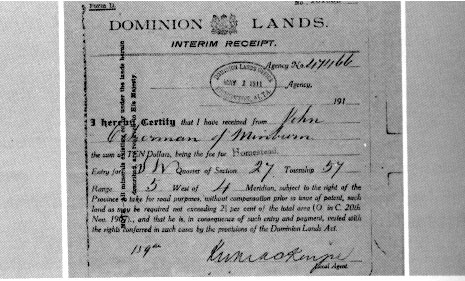 Form D.
No.
DOMINION LANDS.
INTERIM RECEIPT.
Agency No. 474166
DOMINION LANDS OFFICE
MAY 2 1911
EDMONTON, ALTA.
Agency,
191
I hereby Certify that I have received from John
of Minburn
the sum of TEN Dollars, being the fee for Homestead
Entry for Quarter of Section 27 Township 57
Range 5 West of 4 Meridian, subject to the right of the
Province to take for road purposes, without compensation prior to issue of patent, such
land as may be required not exceeding 2½ per cent of the total area (O in C. 20th
Nov. ), and that he is, in consequence of such entry and payment, vested with
the rights conferred in such cases by the provisions of the Dominion Lands Act.
Local Agent.
All minerals existing on or under the lands herein
described, are reserved to His Majesty